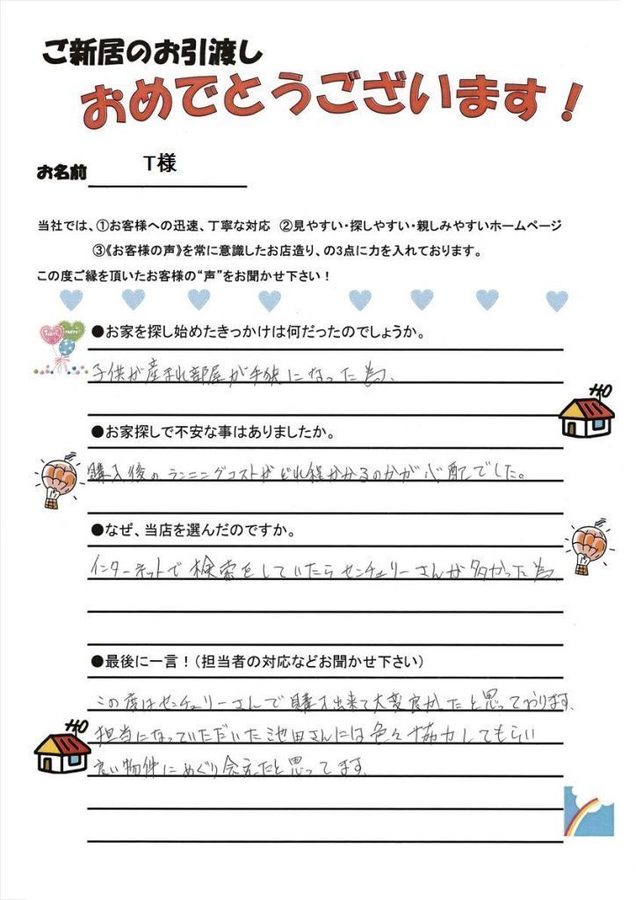 ご新居のお引渡し
おめでとうございます!
お名前 T様
当社では、①お客様への迅速、丁寧な対応 ②見やすい・探しやすい・親しみやすいホームページ
③《お客様の声》を常に意識したお店造り、の3点に力を入れております。
この度ご縁を頂いたお客様の“声”をお聞かせ下さい!
●お家を探し始めたきっかけは何だったのでしょうか。
子供が産まれ部屋が手狭になった為、
●お家探しで不安な事はありましたか。
購入後のランニングコストがどれ程かかるのかが心配でした。
●なぜ、当店を選んだのですか。
インターネットで検索をしていたらセンチュリーさんが多かった為
●最後に一言!(担当者の対応などお聞かせ下さい)
この度はセンチュリーさんで購入出来て大変良かったと思っております、
担当になっていただいた池田さんには色々協力してもらい
良い物件にめぐり会えたと思ってます。